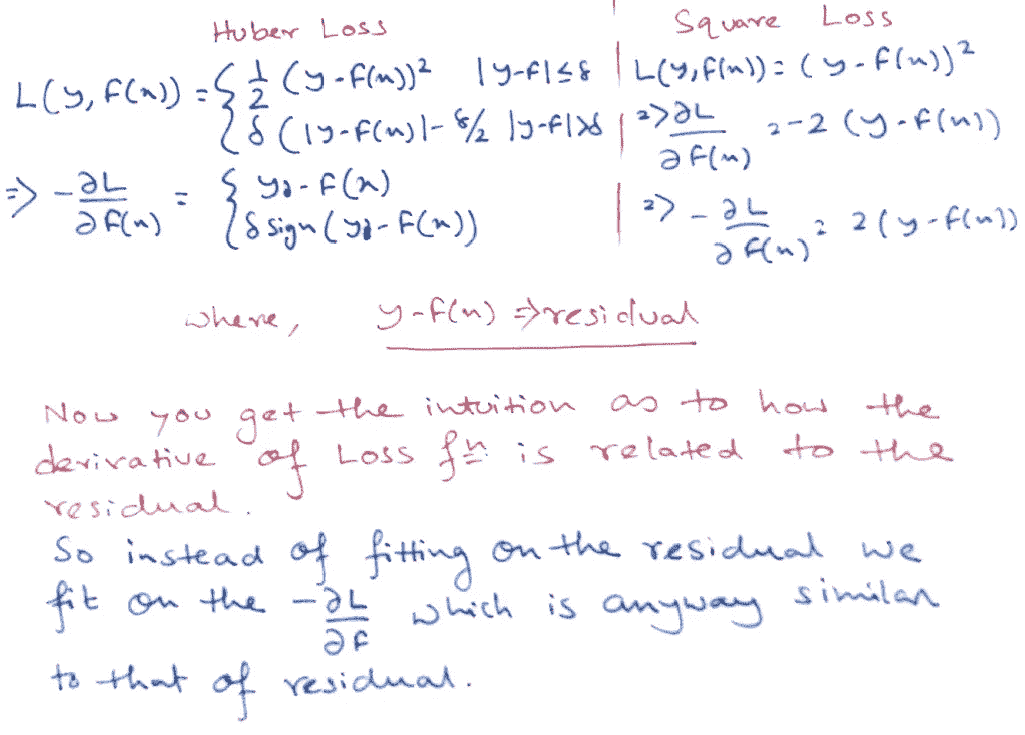 Huber Loss
L(y, F(x)) = { 1/2 (y - F(x))² |y-F| ≤ δ
δ (|y-F(x)| - δ/2 |y-F| > δ
=> -∂L/∂F(x) = { yi - F(x)
δ sign (yi - F(x))
Square Loss
L(y, F(x)) = (y - F(x))²
=> ∂L/∂F(x) = -2 (y - F(x))
=> -∂L/∂F(x) = 2 (y - F(x))
where, y-F(x) => residual
Now you get the intuition as to how the
derivative of Loss fn is related to the
residual.
So instead of fitting on the residual we
fit on the -∂L/∂F which is anyway similar
to that of residual.